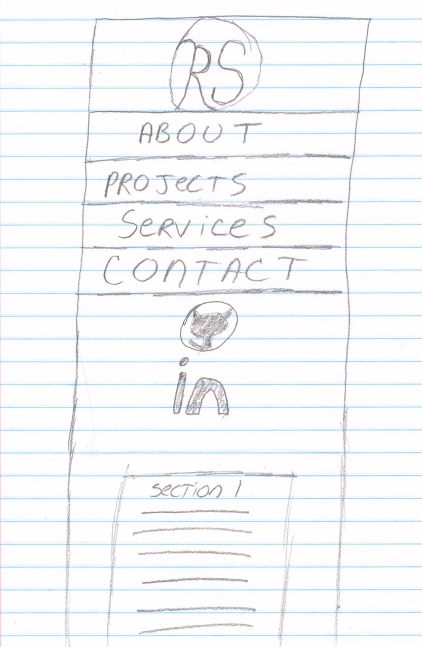 RS
ABOUT
PROJecTS
SeRViceS
CONTACT
in
Section 1